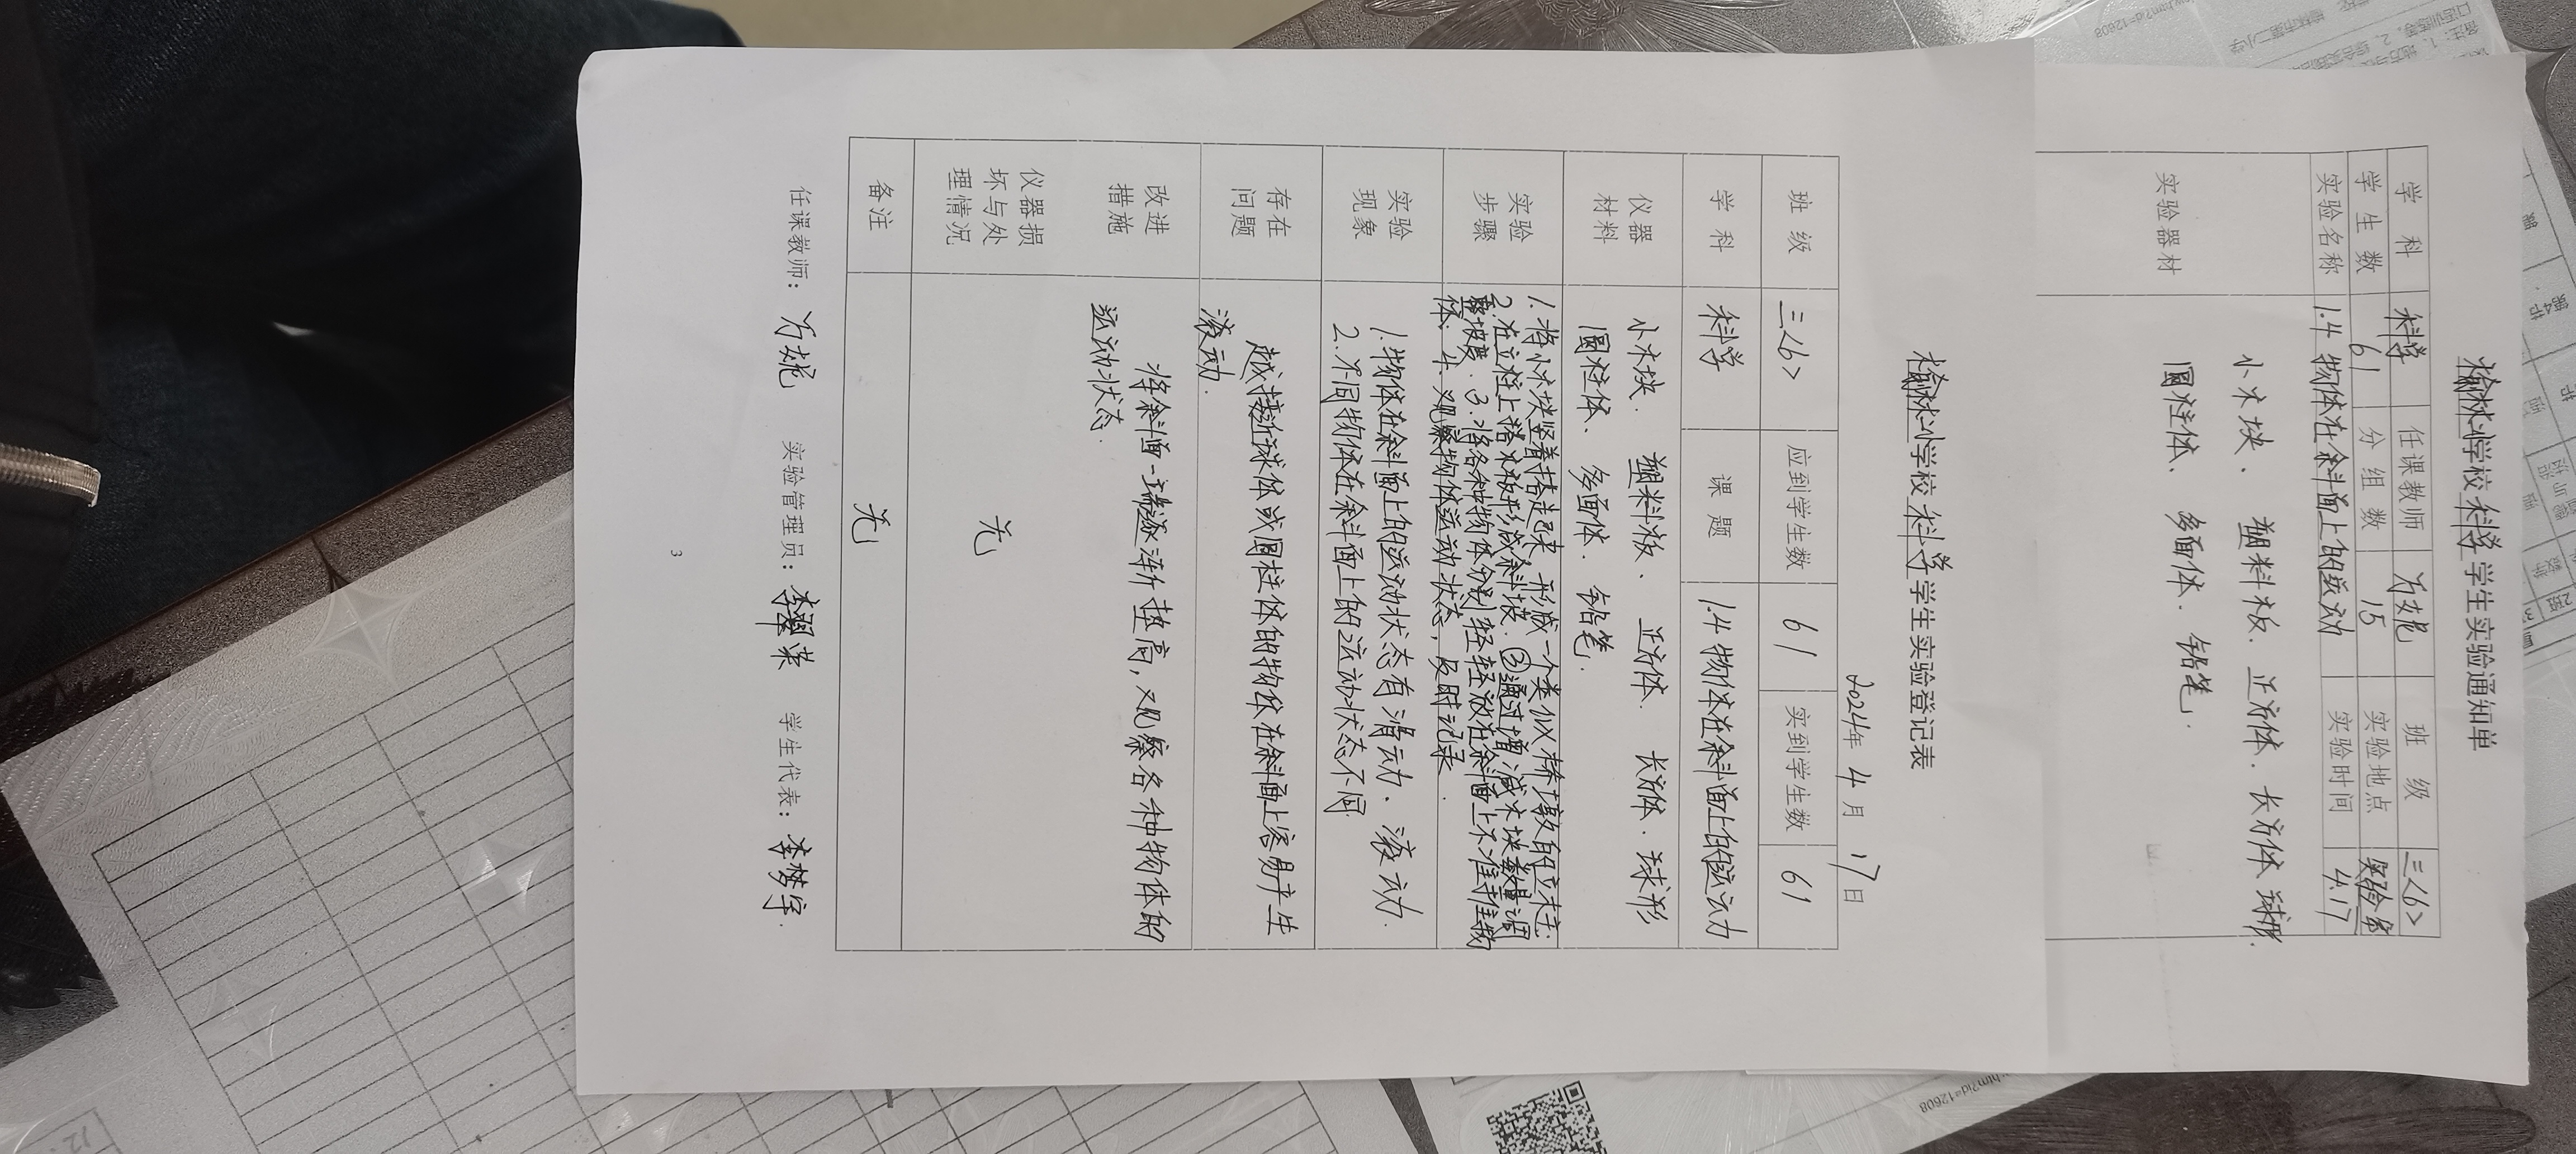 学生实验通知单
学 科 科学 任课教师 班 级 三<6>
学 生 数 61 分 组 数 15 实验地点 实验室
实验名称 1.4 物体在斜面上的运动 实验时间 4.17
实验器材
小木块、塑料板、正方体、长方体、球形、
圆柱体、多面体、铅笔.
学校科学学生实验登记表
2024年 4月 17日
班 级 三<6> 应到学生数 61 实到学生数 61
学 科 科学 课 题 1.4 物体在斜面上的运动
仪器
材料
小木块、塑料板、正方体、长方体、球形
圆柱体、多面体、铅笔.
实验
步骤
1.将小木块竖着搭起来,形成一个类似桥墩的立柱.
2.在立柱上搭木板形成斜坡.②通过增减木块数量调
整坡度.3.将各种物体分别轻轻放在斜面上不准推物
体.4.观察物体运动状态,及时记录.
实验
现象
1.物体在斜面上的运动状态有滑动、滚动.
2.不同物体在斜面上的运动状态不同.
存在
问题
越接近球体或圆柱体的物体在斜面上容易产生
滚动.
改进
措施
将斜面一端逐渐垫高,观察各种物体的
运动状态.
仪器损
坏与处
理情况
无
备注
无
任课教师: 实验管理员: 学生代表: 李梦宇.
3
www.htm?id=12608